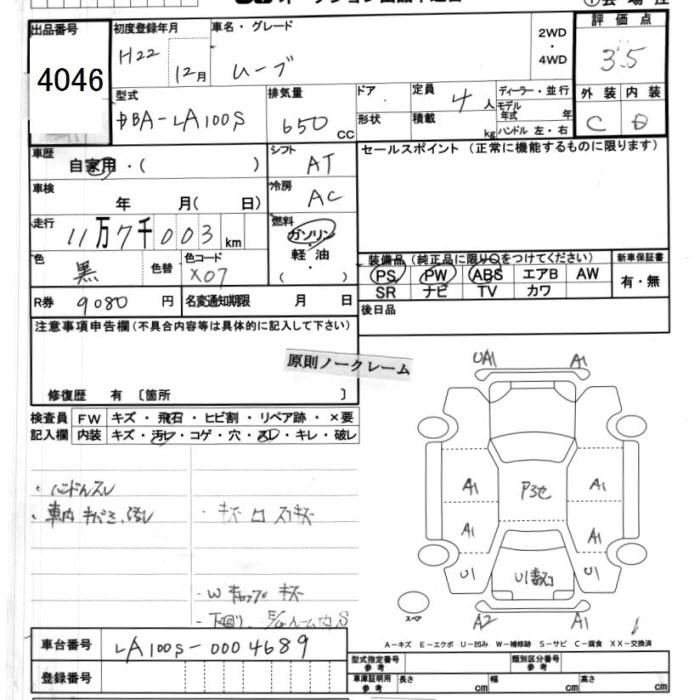 出品番号 4046
初度登録年月 H22 12月
車名・グレード ムーブ
2WD・4WD
評価点 3.5
型式 DBA-LA100S
排気量 650 CC
ドア 形状
定員 4人
積載 kg
ディーラー・並行
モデル年式 年
ハンドル 左・右
外装 C 内装 D
車歴 自家用・( )
シフト AT
セールスポイント(正常に機能するものに限ります)
車検 年 月( 日)
冷房 AC
走行 11万7千003km
燃料 ガソリン・軽油・( )
色 黒 色替
色コード X07
装備品(純正品に限り○をつけてください)
新車保証書 有・無
PS PW ABS エアB AW
SR ナビ TV カワ
R券 9080円
名変通知期限 月 日
後日品
注意事項申告欄(不具合内容等は具体的に記入して下さい)
原則ノークレーム
修復歴 有 〔箇所 〕
検査員記入欄
FW キズ・飛石・ヒビ割・リペア跡・×要
内装 キズ・汚レ・コゲ・穴・スレ・キレ・破レ
・ハンドルスレ
・車内 キズ
・キズ
・W
UA1 A1
A1 A1
Pユセ
A1 A1
U1 U1
A2 A1
スペア
A-キズ E-エクボ U-凹み W-補修跡 S-サビ C-腐食 XX-交換済
車台番号 LA100S-0004689
登録番号
型式指定番号 参考
類別区分番号 参考
車庫証明用 参考 長さ cm 幅 cm 高さ cm